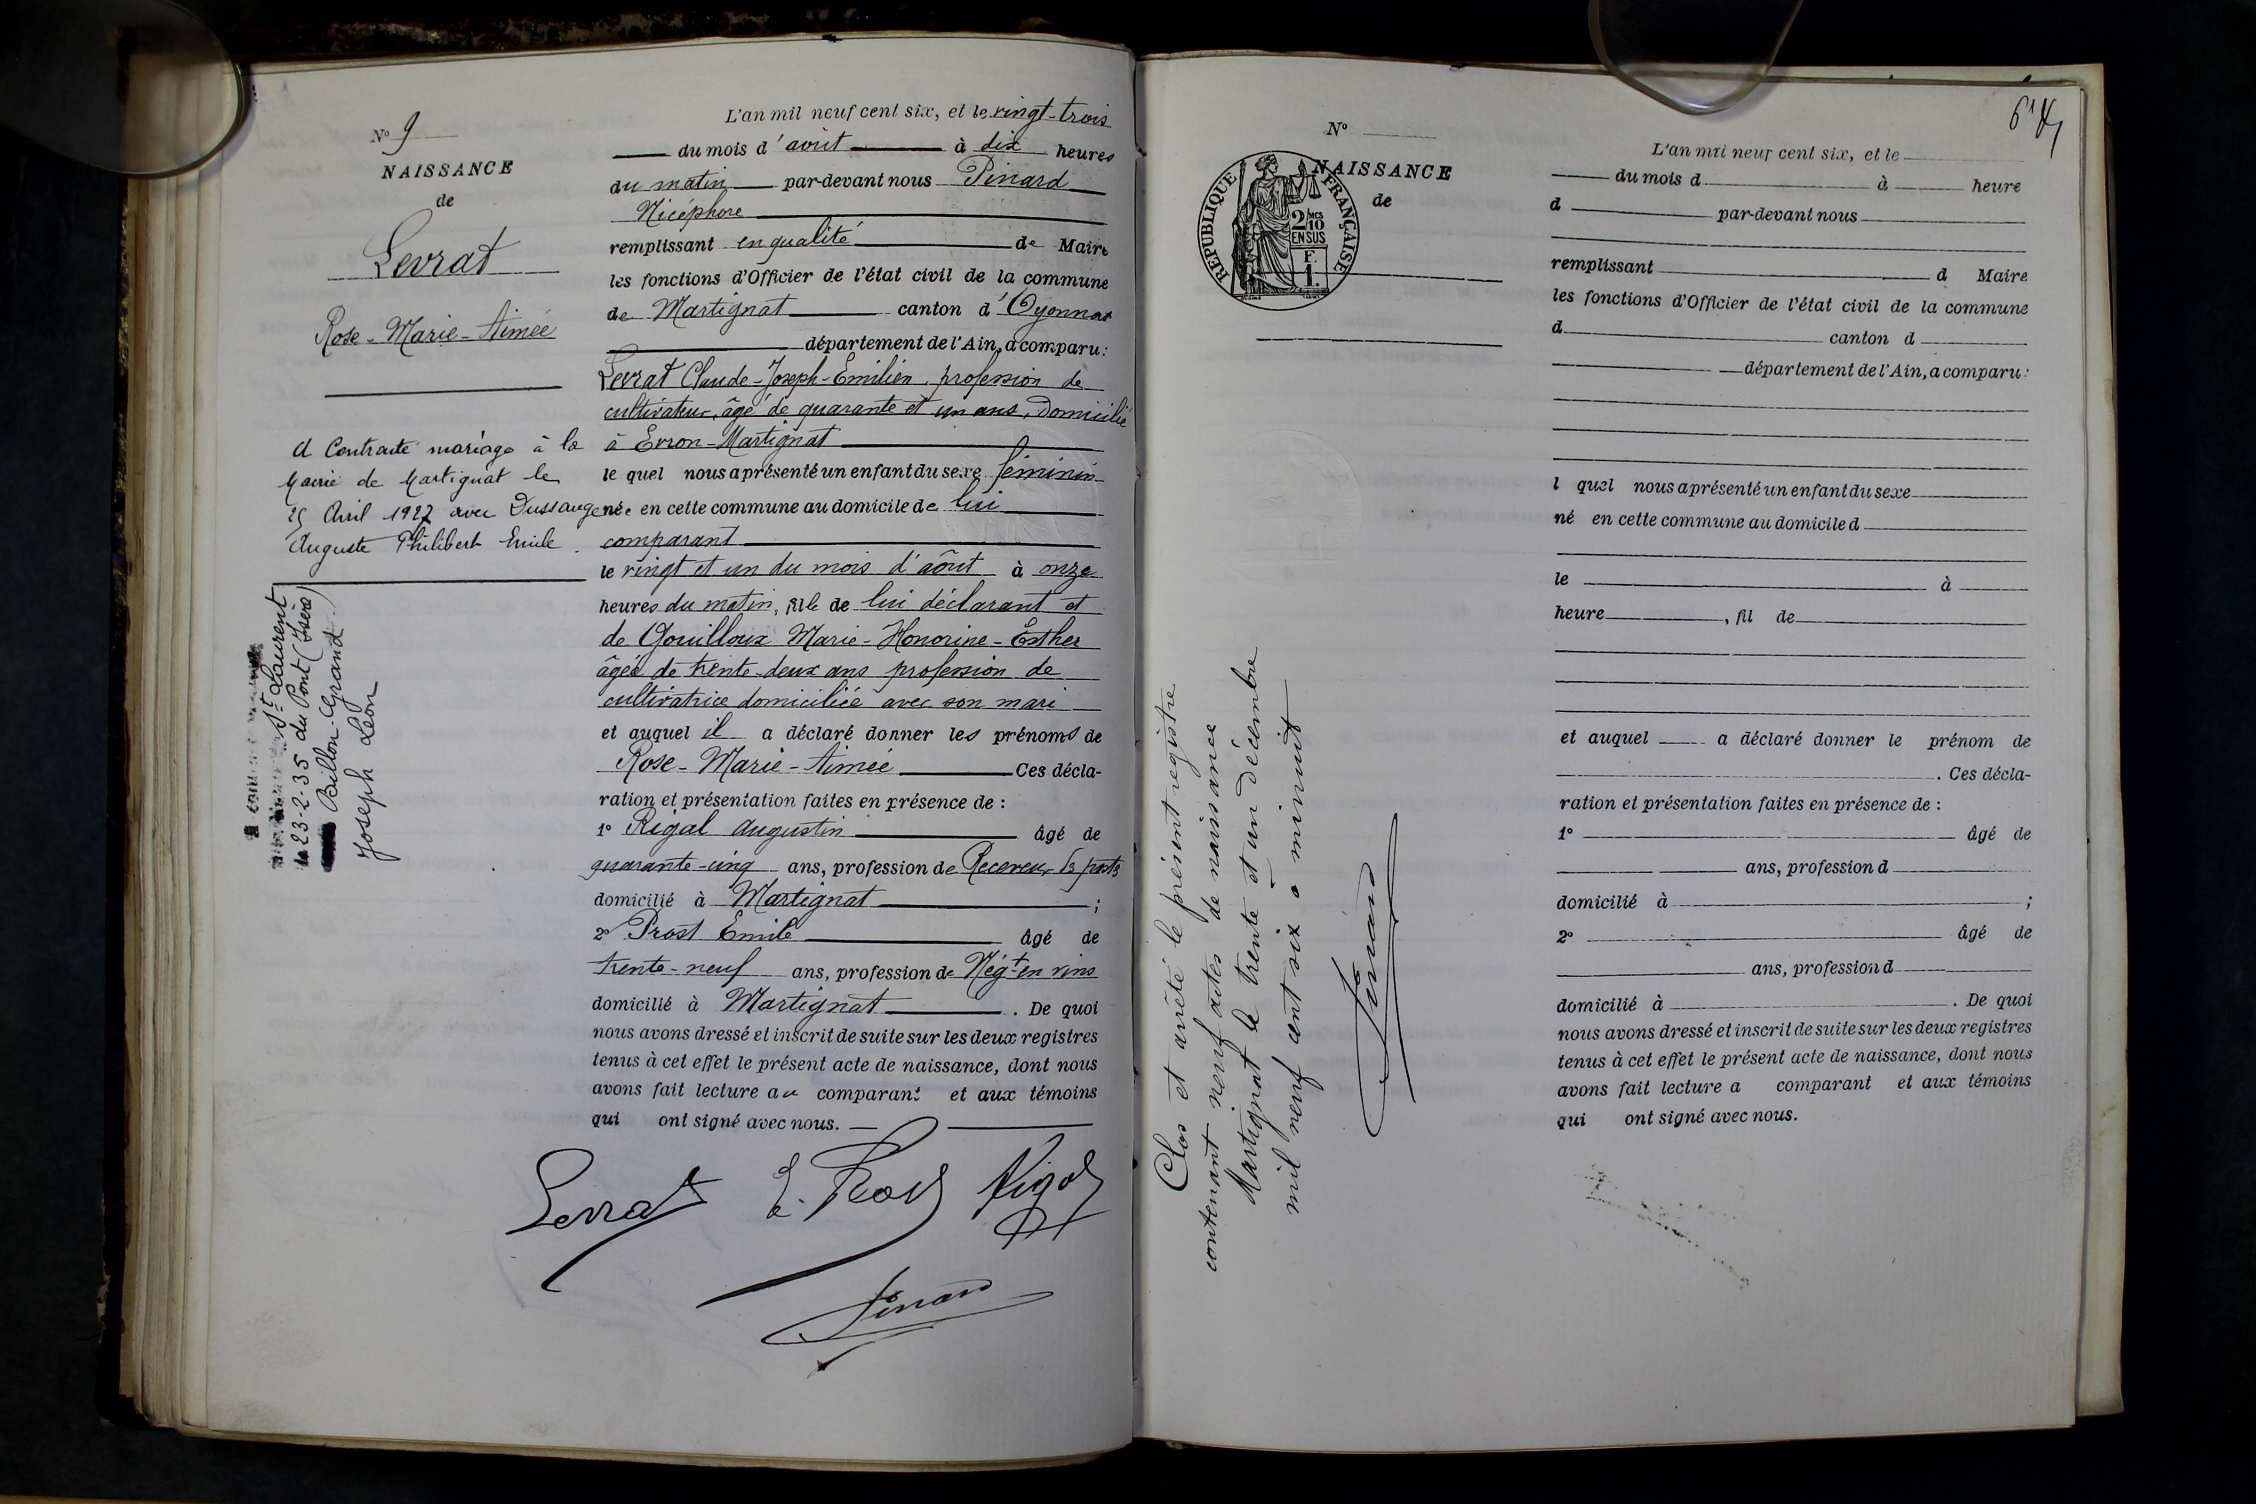 N° 9
NAISSANCE
de
Levrat
Rose-Marie-Aimée
A Contracté mariage à la
Mairie de Martignat le
25 Avril 1927 avec Dussauge
Auguste Philibert Emile.
A contracté mariage
St Laurent
le 23-2-35 du Pont (Isère)
Billon-Grand
Joseph Léon
L'an mil neuf cent six, et le vingt-trois
du mois d'août à dix heures
du matin par-devant nous Pinard
Nicéphore
remplissant en qualité de Maire
les fonctions d'Officier de l'état civil de la commune
de Martignat canton d'Oyonnax
département de l'Ain, a comparu:
Levrat Claude-Joseph-Emilien, profession de
cultivateur, âgé de quarante et un ans, domicilié
à Evron-Martignat
le quel nous a présenté un enfant du sexe féminin
née en cette commune au domicile de lui
comparant
le vingt et un du mois d'août à onze
heures du matin, fille de lui déclarant et
de Gouilloux Marie-Honorine-Esther
âgée de trente-deux ans profession de
cultivatrice domiciliée avec son mari
et auquel il a déclaré donner les prénoms de
Rose-Marie-Aimée Ces décla-
ration et présentation faites en présence de :
1° Rigal Augustin âgé de
quarante-cinq ans, profession de Receveur des postes
domicilié à Martignat ;
2° Prost Emile âgé de
trente-neuf ans, profession de Nég-t en vins
domicilié à Martignat. De quoi
nous avons dressé et inscrit de suite sur les deux registres
tenus à cet effet le présent acte de naissance, dont nous
avons fait lecture au comparant et aux témoins
qui ont signé avec nous.
Levrat E. Prost Rigal
Pinard
N°
NAISSANCE
de
REPUBLIQUE FRANÇAISE
2/10 MES
EN SUS
F.
1.
Clos et arrêté le présent registre
contenant neuf actes de naissance
Martignat le trente et un décembre
mil neuf cent six à minuit
Pinard
L'an mil neuf cent six, et le
du mois d à heure
d par-devant nous
remplissant d Maire
les fonctions d'Officier de l'état civil de la commune
d canton d
département de l'Ain, a comparu:
l quel nous a présenté un enfant du sexe
né en cette commune au domicile d
le à
heure , fil de
et auquel a déclaré donner le prénom de
. Ces décla-
ration et présentation faites en présence de :
1° âgé de
ans, profession d
domicilié à ;
2° âgé de
ans, profession d
domicilié à . De quoi
nous avons dressé et inscrit de suite sur les deux registres
tenus à cet effet le présent acte de naissance, dont nous
avons fait lecture a comparant et aux témoins
qui ont signé avec nous.